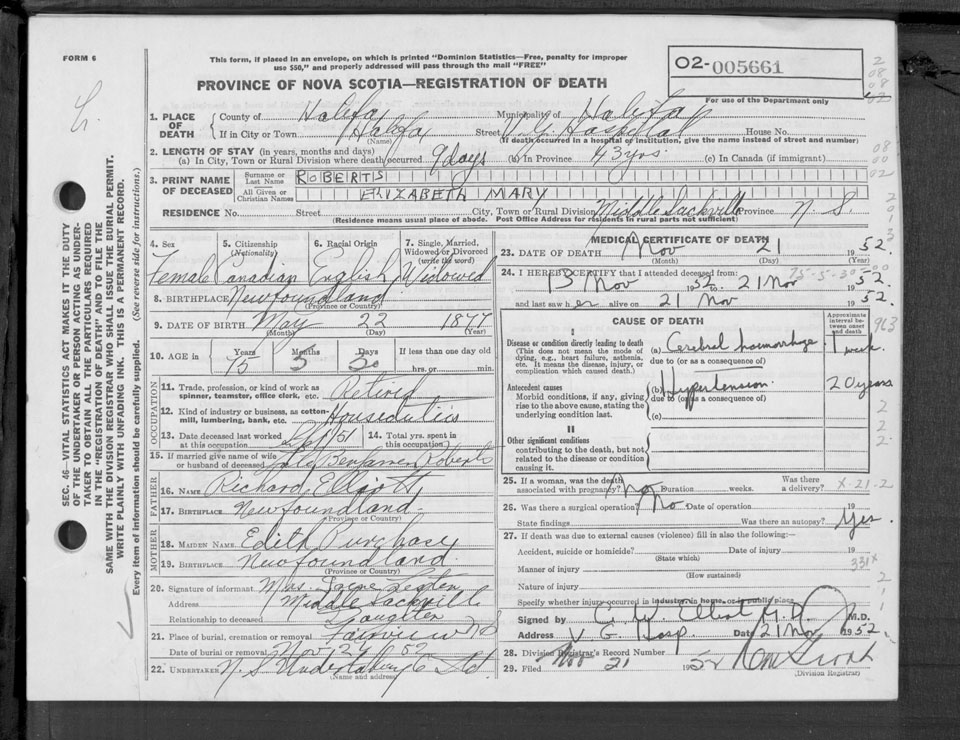 FORM 6
This form, if placed in an envelope, on which is printed "Dominion Statistics—Free, penalty for improper
use $50," and properly addressed will pass through the mail "FREE"
PROVINCE OF NOVA SCOTIA—REGISTRATION OF DEATH
02-005661
For use of the Department only
1. PLACE OF DEATH
County of Halifax Municipality of Halifax
If in City or Town Halifax Street V. G. Hospital House No.
(Name) (If death occurred in a hospital or institution, give the name instead of street and number)
2. LENGTH OF STAY (in years, months and days)
(a) In City, Town or Rural Division where death occurred 9 days (b) In Province 43 yrs. (c) In Canada (if immigrant)
3. PRINT NAME OF DECEASED
Surname or Last Name ROBERTS
All Given or Christian Names ELIZABETH MARY
RESIDENCE No. Street City, Town or Rural Division Middle Sackville Province N. S.
(Residence means usual place of abode. Post Office Address for residents in rural parts not sufficient)
4. Sex 5. Citizenship (Nationality) 6. Racial Origin 7. Single, Married, Widowed or Divorced (write the word)
Female Canadian English Widowed
8. BIRTHPLACE Newfoundland
(Province or Country)
9. DATE OF BIRTH May 22 1877
(Month) (Day) (Year)
10. AGE in Years Months Days If less than one day
75 5 30 hrs. or min.
OCCUPATION
11. Trade, profession, or kind of work as spinner, teamster, office clerk, etc. Retired
12. Kind of industry or business, as cotton-mill, lumbering, bank, etc. Houseduties
13. Date deceased last worked at this occupation 1951 14. Total yrs. spent in this occupation
15. If married give name of wife or husband of deceased Benjamin Roberts
FATHER
16. NAME Richard Elliott
17. BIRTHPLACE Newfoundland
(Province or Country)
MOTHER
18. MAIDEN NAME Edith Purchase
19. BIRTHPLACE Newfoundland
(Province or Country)
20. Signature of informant Mrs.
Address Middle Sackville
Relationship to deceased Daughter
21. Place of burial, cremation or removal Fairview N S
Date of burial or removal Nov 24 52
22. UNDERTAKER N. S. Undertaking Co Ltd.
(Name and address)
MEDICAL CERTIFICATE OF DEATH
23. DATE OF DEATH Nov 21 1952
(Month) (Day) (Year)
24. I HEREBY CERTIFY that I attended deceased from:
13 Nov 1952 to 21 Nov 1952
and last saw her alive on 21 Nov 1952.
CAUSE OF DEATH
Approximate interval between onset and death
I
Disease or condition directly leading to death
(This does not mean the mode of dying, e.g., heart failure, asthenia, etc. It means the disease, injury, or complication which caused death.)
(a) Cerebral haemorrhage 1 week
due to (or as a consequence of)
Antecedent causes
Morbid conditions, if any, giving rise to the above cause, stating the underlying condition last.
(b) Hypertension 20 years
due to (or as a consequence of)
(c)
II
Other significant conditions contributing to the death, but not related to the disease or condition causing it.
25. If a woman, was the death associated with pregnancy? No Duration weeks. Was there a delivery?
26. Was there a surgical operation? No Date of operation 19
State findings Was there an autopsy? Yes.
27. If death was due to external causes (violence) fill in also the following:—
Accident, suicide or homicide? Date of injury 19
(State which)
Manner of injury
(How sustained)
Nature of injury
Specify whether injury occurred in industry, in home, or in public place
Signed by C. W. Elliot M.D. M.D.
Address V. G. Hosp. Date 21 Nov 1952.
28. Division Registrar's Record Number
29. Filed Nov 21 1952
(Division Registrar)
SEC. 46—VITAL STATISTICS ACT MAKES IT THE DUTY
OF THE UNDERTAKER OR PERSON ACTING AS UNDER-
TAKER TO OBTAIN ALL THE PARTICULARS REQUIRED
IN THE "REGISTRATION OF DEATH" AND TO FILE THE
SAME WITH THE DIVISION REGISTRAR WHO SHALL ISSUE THE BURIAL PERMIT.
WRITE PLAINLY WITH UNFADING INK. THIS IS A PERMANENT RECORD.
Every item of information should be carefully supplied. (See reverse side for instructions.)